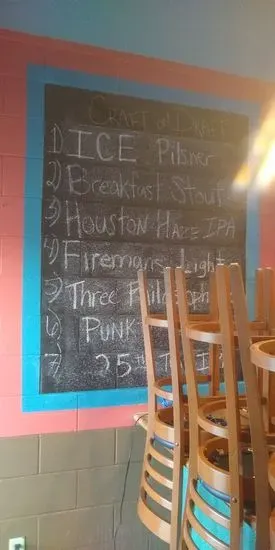 CRAFT on DRAFT
1) ICE Pilsner
2) Breakfast Stout
3) HOUSTON HAZE IPA
4) Firemans Light
5) Three Philosoph
6) PUNK
7) 25th